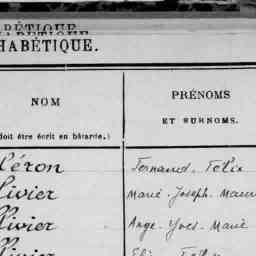 BÉTIQUE
HABÉTIQUE.
NOM
(doit être écrit en bâtarde.)
PRÉNOMS
ET SURNOMS.
léron Fernand. Félix
livier Marie-Joseph-Maur
llivier Ange-Yves-Marie
llivier